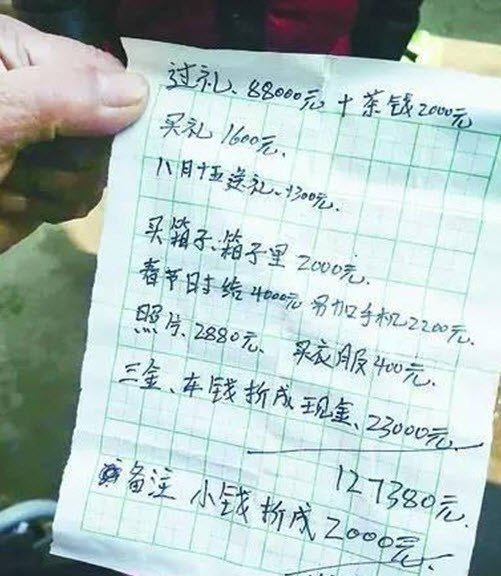 过礼、88000元 + 茶钱2000元
买礼 1600元、
八月十五送礼、1300元、
买箱子、箱子里 2000元、
春节时给4000元 另加手机2200元、
照片、2880元、 买衣服400元、
三金、车钱折成现金、23000元、
127380元、
备注 小钱折成2000元、